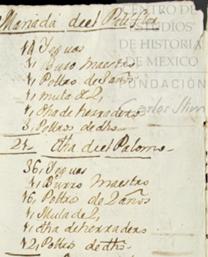 Manada del Pitiflor
14, Yeguas
1, Burro Maestro
Potros de 2 años
1, mula de 2,
1, Otra de herradero
3, Potros de dho.
21. Otra de el Palomo
36, Yeguas
1, Burro Maestro
16, Potros de 2 años
1, Mula de 2,
1, Otra de herradero
12, Potros de dho.
CENTRO DE
ESTUDIOS
DE HISTORIA
DE MEXICO
FUNDACIÓN
Carlos Slim